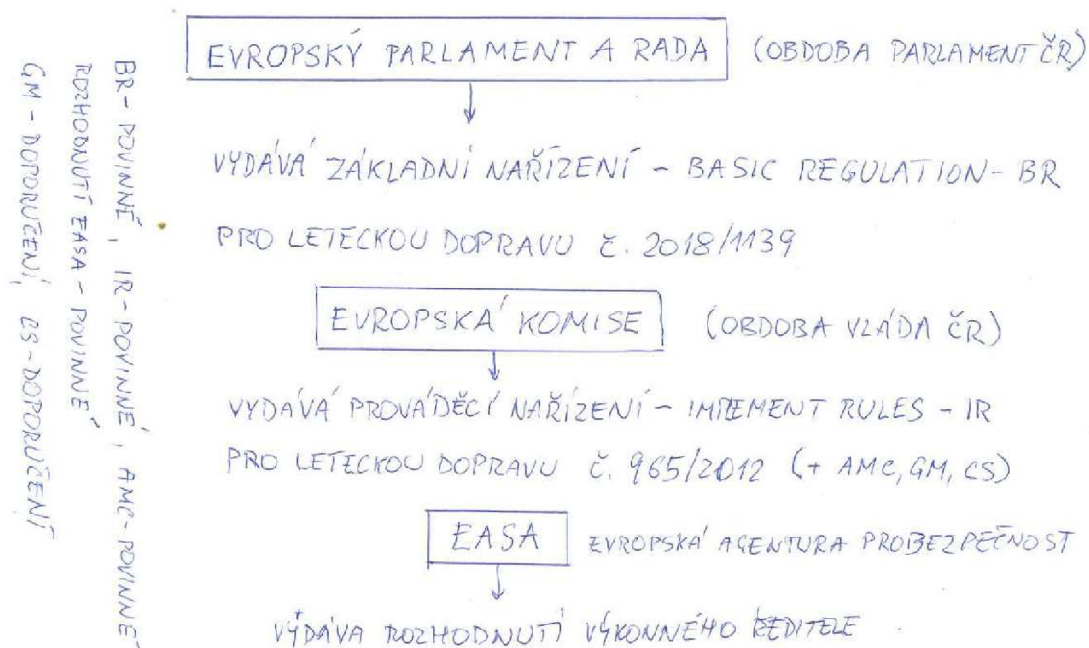 EVROPSKÝ PARLAMENT A RADA (OBDOBA PARLAMENT ČR)
VYDÁVÁ ZÁKLADNÍ NAŘÍZENÍ - BASIC REGULATION - BR
PRO LETECKOU DOPRAVU Č. 2018/1139
EVROPSKÁ KOMISE (OBDOBA VLÁDA ČR)
VYDÁVÁ PROVÁDĚCÍ NAŘÍZENÍ - IMPEMENT RULES - IR
PRO LETECKOU DOPRAVU Č. 965/2012 (+ AMC, GM, CS)
EASA EVROPSKÁ AGENTURA PRO BEZPEČNOST
VÝDÁVA ROZHODNUTÍ VÝKONNÉHO ŘEDITELE
BR - POVINNÉ, IR - POVINNÉ, AMC - POVINNÉ
ROZHODNUTÍ EASA - POVINNÉ
GM - DOPORUČENÍ, CS - DOPORUČENÍ